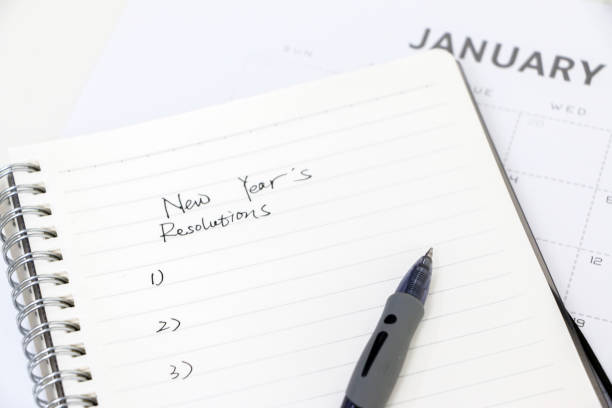 JANUARY
SUN
UE
WED
New Year's
Resolutions
1)
2)
3)
12